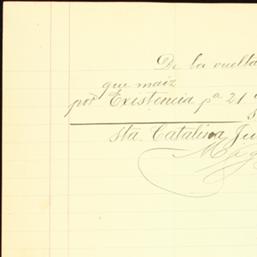 De la vuelta
que maiz
por Existencia pa 21
Sta. Catalina Ju